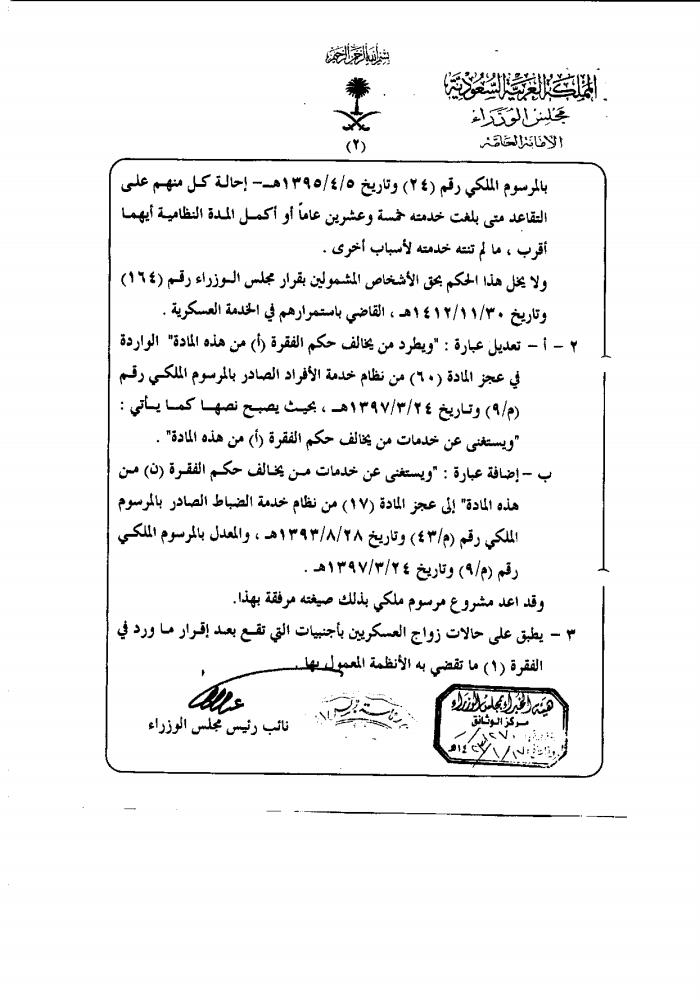 بسم الله الرحمن الرحيم
المملكة العربية السعودية
مجلس الوزراء
الأمانة العامة
(٢)
بالمرسوم الملكي رقم (٢٤) وتاريخ ١٣٩٥/٤/٥هـ – إحالة كل منهم على
التقاعد متى بلغت خدمته خمسة وعشرين عاماً أو أكمل المدة النظامية أيهما
أقرب ، ما لم تنته خدمته لأسباب أخرى .
ولا يخل هذا الحكم بحق الأشخاص المشمولين بقرار مجلس الوزراء رقم (١٦٤)
وتاريخ ١٤١٢/١١/٣٠هـ ، القاضي باستمرارهم في الخدمة العسكرية .
٢ – أ – تعديل عبارة : "ويطرد من يخالف حكم الفقرة (أ) من هذه المادة" الواردة
في عجز المادة (٦٠) من نظام خدمة الأفراد الصادر بالمرسوم الملكي رقم
(م/٩) وتاريخ ١٣٩٧/٣/٢٤هـ ، بحيث يصبح نصها كما يأتي :
"ويستغنى عن خدمات من يخالف حكم الفقرة (أ) من هذه المادة" .
ب – إضافة عبارة : "ويستغنى عن خدمات من يخالف حكم الفقرة (ن) من
هذه المادة" إلى عجز المادة (١٧) من نظام خدمة الضباط الصادر بالمرسوم
الملكي رقم (م/٤٣) وتاريخ ١٣٩٣/٨/٢٨هـ ، والمعدل بالمرسوم الملكي
رقم (م/٩) وتاريخ ١٣٩٧/٣/٢٤هـ .
وقد اعد مشروع مرسوم ملكي بذلك صيغته مرفقة بهذا.
٣ – يطبق على حالات زواج العسكريين بأجنبيات التي تقع بعد إقرار ما ورد في
الفقرة (١) ما تقضي به الأنظمة المعمول بها .
نائب رئيس مجلس الوزراء
هيئة الخبراء بمجلس الوزراء
مركز الوثائق